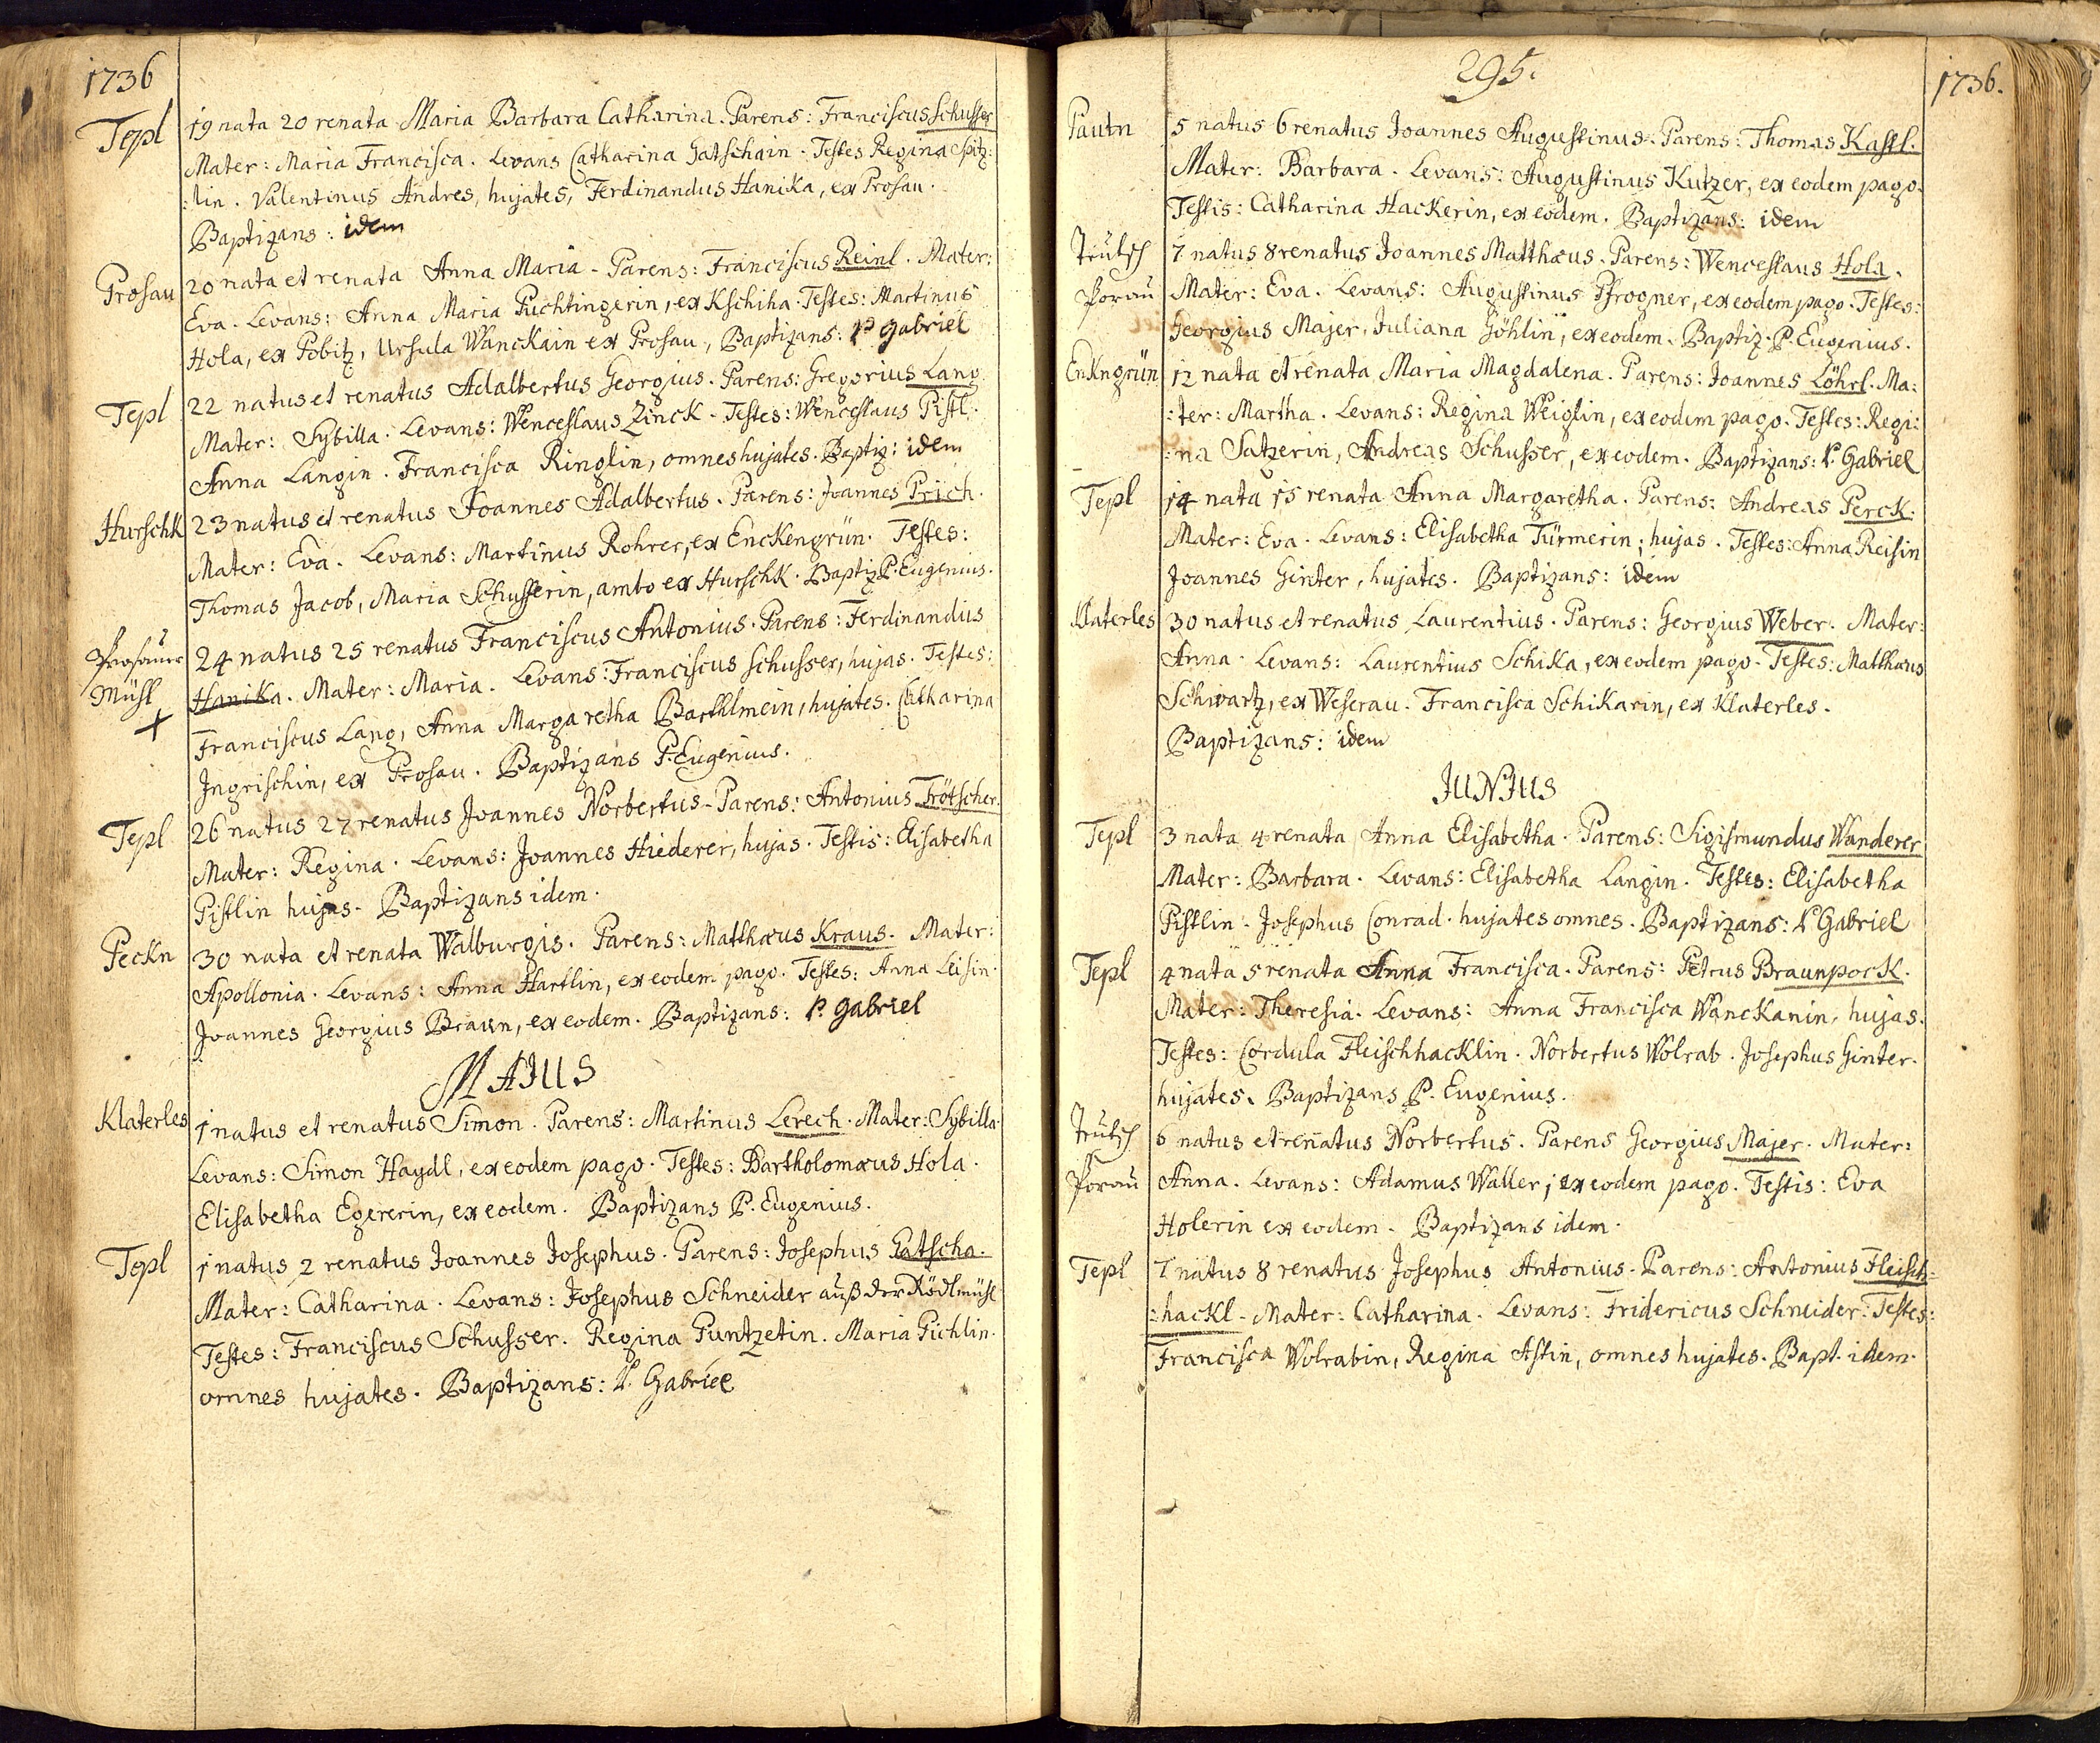 1736
Tepl 19 nata 20 renata Maria Barbara Catharina. Parens: Franciscus Schusser
Mater: Maria Francisca. Levans Catharina Gatschain. Testes Regina Spitz:
:lin. Valentinus Andres, hujates, Ferdinandus Hanika, ex Prosau.
Baptizans: idem
Prosau 20 nata et renata Anna Maria. Parens: Franciscus Reinl. Mater:
Eva. Levans: Anna Maria Puchtingerin, ex Kschiha. Testes: Martinus
Hola, ex Pobitz, Ursula Wanckain ex Prosau, Baptizans: P. Gabriel
Tepl 22 natus et renatus Adalbertus Georgius. Parens: Gregorius Lang
Mater: Sybilla. Levans: Wenceslaus Zinck. Testes: Wenceslaus Pistl.
Anna Langin. Francisca Ringlin, omnes hujates. Baptiz: idem
Hurschk 23 natus et renatus Joannes Adalbertus. Parens: Joannes Prich.
Mater: Eva. Levans: Martinus Rohrer, ex Enckengrün. Testes:
Thomas Jacob, Maria Schusserin, ambo ex Hurschk. Baptiz P. Eugenius.
Prosauer 24 natus 25 renatus Franciscus Antonius. Parens: Ferdinandus
Mühl Hanika. Mater: Maria. Levans: Franciscus Schusser, hujas. Testes:
+ Franciscus Lang, Anna Margaretha Barthlmein, hujates. Catharina
Ingrischin, ex Prosau. Baptizans P. Eugenius.
Tepl 26 natus 27 renatus Joannes Norbertus. Parens: Antonius Trötscher.
Mater: Regina. Levans: Joannes Hiederer, hujas. Testis: Elisabetha
Pistlin hujas. Baptizans idem.
Peckn 30 nata et renata Walburgis. Parens: Matthæus Kraus. Mater:
Apollonia. Levans: Anna Hartlin, ex eodem pago. Testes: Anna Leisin.
Joannes Georgius Braun, ex eodem. Baptizans: P. Gabriel
MAIUS
Klaterles 1 natus et renatus Simon. Parens: Martinus Lerech. Mater: Sybilla.
Levans: Simon Haydl, ex eodem pago. Testes: Bartholomæus Hola.
Elisabetha Egererin, ex eodem. Baptizans P. Eugenius.
Tepl 1 natus 2 renatus Joannes Josephus. Parens: Josephus Gatscha.
Mater: Catharina. Levans: Josephus Schneider auß der Rödlmühl
Testes: Franciscus Schusser. Regina Puntzetin. Maria Pichlin.
omnes hujates. Baptizans: P. Gabriel
295.
1736.
Pautn 5 natus 6 renatus Joannes Augustinus. Parens: Thomas Kastl.
Mater: Barbara. Levans: Augustinus Kutzer, ex eodem pago.
Testis: Catharina Hackerin, ex eodem. Baptizans: idem
Teutsch 7 natus 8 renatus Joannes Matthæus. Parens: Wenceslaus Hola.
Porau Mater: Eva. Levans: Augustinus Pfrogner, ex eodem pago. Testes:
Georgius Majer, Juliana Göhlin, ex eodem. Baptiz. P. Eugenius.
Enkngrün 12 nata et renata Maria Magdalena. Parens: Joannes Löhrl. Ma:
:ter: Martha. Levans: Regina Weiglin, ex eodem pago. Testes: Regi:
:na Satzerin, Andreas Schusser, ex eodem. Baptizans: P. Gabriel
Tepl 14 nata 15 renata Anna Margaretha. Parens: Andreas Perck.
Mater: Eva. Levans: Elisabetha Türmerin, hujas. Testes: Anna Reisin
Joannes Ginter, hujates. Baptizans: idem
Klaterles 30 natus et renatus Laurentius. Parens: Georgius Weber. Mater:
Anna. Levans: Laurentius Schika, ex eodem pago. Testes: Matthæus
Schwartz, ex Weserau. Francisca Schikarin, ex Klaterles.
Baptizans: idem
JUNIUS
Tepl 3 nata 4 renata Anna Elisabetha. Parens: Sigismundus Wanderer
Mater: Barbara. Levans: Elisabetha Langin. Testes: Elisabetha
Pistlin. Josephus Conrad. hujates omnes. Baptizans: P. Gabriel
Tepl 4 nata 5 renata Anna Francisca. Parens: Petrus Braunpock.
Mater: Theresia. Levans: Anna Francisca Wanckanin, hujas.
Testes: Cordula Fleischhacklin. Norbertus Wolrab. Josephus Ginter.
hujates. Baptizans P. Eugenius.
Teutsch 6 natus et renatus Norbertus. Parens Georgius Majer. Mater:
Porau Anna. Levans: Adamus Waller, ex eodem pago. Testis: Eva
Holerin ex eodem. Baptizans idem.
Tepl 7 natus 8 renatus Josephus Antonius. Parens: Antonius Fleisch:
:hackl. Mater: Catharina. Levans: Fridericus Schneider. Testes:
Francisca Wolrabin, Regina Astin, omnes hujates. Bapt. idem.